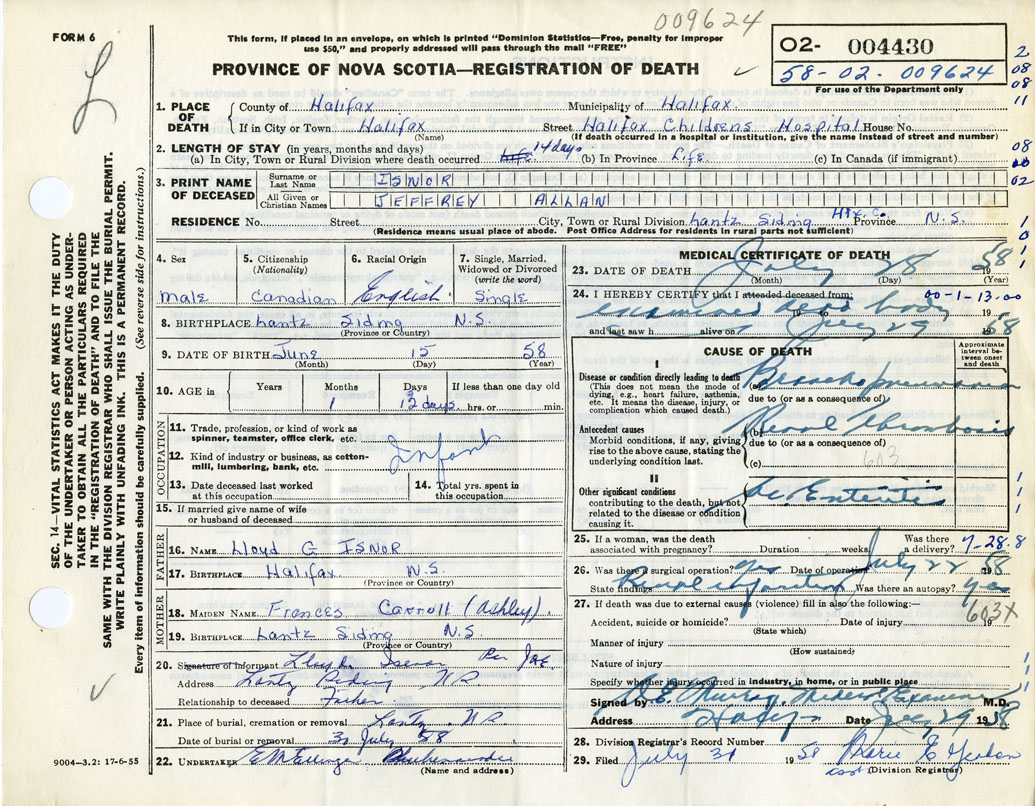 009624
FORM 6
This form, if placed in an envelope, on which is printed "Dominion Statistics—Free, penalty for improper
use $50," and properly addressed will pass through the mail "FREE"
O2- 004430
58-02. 009624
For use of the Department only
PROVINCE OF NOVA SCOTIA—REGISTRATION OF DEATH
2
08
08
11
1. PLACE OF DEATH
County of Halifax Municipality of Halifax
If in City or Town Halifax Street Halifax Childrens Hospital House No.
(Name) (If death occurred in hospital or institution, give the name instead of street and number)
2. LENGTH OF STAY (in years, months and days)
(a) In City, Town or Rural Division where death occurred Life 14 days (b) In Province Life (c) In Canada (if immigrant)
08
02
3. PRINT NAME OF DECEASED
Surname or Last Name ISNOR
All Given or Christian Names JEFFREY ALLAN
RESIDENCE No. Street City, Town or Rural Division Lantz Siding Hfx. C. Province N.S.
(Residence means usual place of abode. Post Office Address for residents in rural parts not sufficient)
4. Sex
male
5. Citizenship
(Nationality)
Canadian
6. Racial Origin
English
7. Single, Married, Widowed or Divorced
(write the word)
Single
8. BIRTHPLACE Lantz Siding N.S.
(Province or Country)
9. DATE OF BIRTH June 15 58
(Month) (Day) (Year)
10. AGE in Years Months Days If less than one day old
1 12 days hrs. or min.
OCCUPATION
11. Trade, profession, or kind of work as
spinner, teamster, office clerk, etc.
Infant
12. Kind of industry or business, as cotton-
mill, lumbering, bank, etc.
13. Date deceased last worked
at this occupation
14. Total yrs. spent in
this occupation
15. If married give name of wife
or husband of deceased
FATHER
16. NAME Lloyd G ISNOR
17. BIRTHPLACE Halifax N.S.
(Province or Country)
MOTHER
18. MAIDEN NAME Frances Carroll (Ashley)
19. BIRTHPLACE Lantz Siding N.S.
(Province or Country)
20. Signature of informant Lloyd Isnor Per
Address Lantz Siding N.S.
Relationship to deceased Father
21. Place of burial, cremation or removal Lantz N.S.
Date of burial or removal 30 July 58
22. UNDERTAKER
(Name and address)
MEDICAL CERTIFICATE OF DEATH
23. DATE OF DEATH July 28 1958
(Month) (Day) (Year)
24. I HEREBY CERTIFY that I attended deceased from: 00-1-13.00
examined dead body
19 to 19
and last saw h alive on July 29 1958
CAUSE OF DEATH
Approximate interval between onset and death
I
Disease or condition directly leading to death
(This does not mean the mode of
dying, e.g., heart failure, asthenia,
etc. It means the disease, injury, or
complication which caused death.)
(a) Bronchopneumonia
due to (or as a consequence of)
Antecedent causes
Morbid conditions, if any, giving
rise to the above cause, stating the
underlying condition last.
(b) Renal thrombosis
due to (or as a consequence of)
603
(c)
II
Other significant conditions
contributing to the death, but not
related to the disease or condition
causing it.
Ac Enteritis
25. If a woman, was the death
associated with pregnancy? Duration weeks Was there
a delivery? 7-28.8
26. Was there a surgical operation? yes Date of operation July 22 1958
State findings Renal Was there an autopsy? yes
27. If death was due to external causes (violence) fill in also the following:—
Accident, suicide or homicide? Date of injury 19
603X
(State which)
Manner of injury
(How sustained)
Nature of injury
Specify whether injury occurred in industry, in home, or in public place
Signed by Murray Medical Examiner M.D.
Address Date July 29 1958
28. Division Registrar's Record Number
29. Filed July 31 1958 Marie E
(Division Registrar)
SEC. 14—VITAL STATISTICS ACT MAKES IT THE DUTY
OF THE UNDERTAKER OR PERSON ACTING AS UNDER-
TAKER TO OBTAIN ALL THE PARTICULARS REQUIRED
IN THE "REGISTRATION OF DEATH" AND TO FILE THE
SAME WITH THE DIVISION REGISTRAR WHO SHALL ISSUE THE BURIAL PERMIT.
WRITE PLAINLY WITH UNFADING INK. THIS IS A PERMANENT RECORD.
Every item of information should be carefully supplied. (See reverse side for instructions.)
9004—3.2: 17-6-55